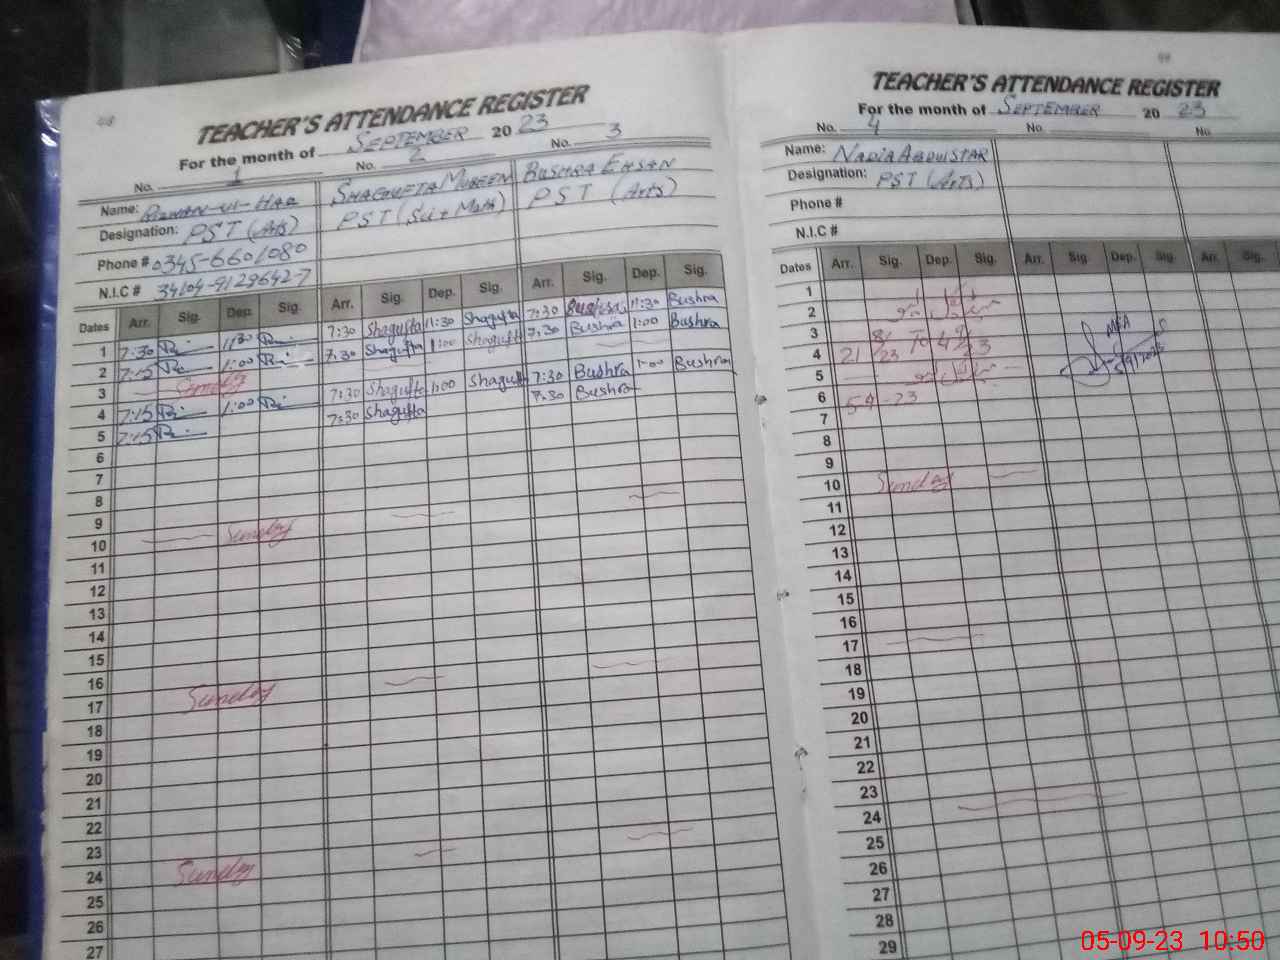 TEACHER'S ATTENDANCE REGISTER
For the month of SEPTEMBER 20 23
No. 1 No. 2 No. 3
Name: RIZWAN-UL-HAQ SHAGUFTA MUBEEN BUSHRA EHSAN
Designation: PST (Arts) PST (Sci + Math) PST (Arts)
Phone # 0345-6601080
N.I.C # 34104-9129642-7
Dates Arr. Sig. Dep. Sig. Arr. Sig. Dep. Sig. Arr. Sig. Dep. Sig.
1 7:30 11:30 7:30 Shagufta 11:30 Shagufta 7:30 Bushra 11:30 Bushra
2 7:15 1:00 7:30 Shagufta 1:00 Shagufta 7:30 Bushra 1:00 Bushra
3 Sunday
4 7:15 1:00 7:30 Shagufta 1:00 Shagufta 7:30 Bushra 1:00 Bushra
5 7:15 7:30 Shagufta 7:30 Bushra
6
7
8
9
10 Sunday
11
12
13
14
15
16
17 Sunday
18
19
20
21
22
23
24 Sunday
25
26
27
TEACHER'S ATTENDANCE REGISTER
For the month of SEPTEMBER 20 23
No. 4 No. No.
Name: NADIA ABDUSTAR
Designation: PST (Arts)
Phone #
N.I.C #
Dates Arr. Sig. Dep. Sig. Arr. Sig. Dep. Sig. Arr. Sig.
1
2
3
4 21 8/23 To 4 9/23
5
6 5-9-23
7
8
9
10 Sunday
11
12
13
14
15
16
17
18
19
20
21
22
23
24
25
26
27
28
29
05-09-23 10:50